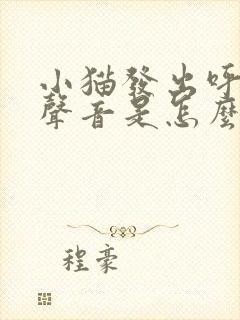 小猫發出呼
聲音是怎麼
程豪